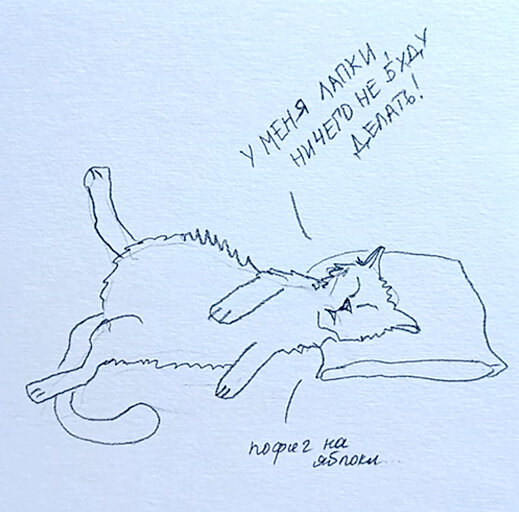 У МЕНЯ ЛАПКИ,
НИЧЕГО НЕ БУДУ
ДЕЛАТЬ!
пофиг на
яблоки...